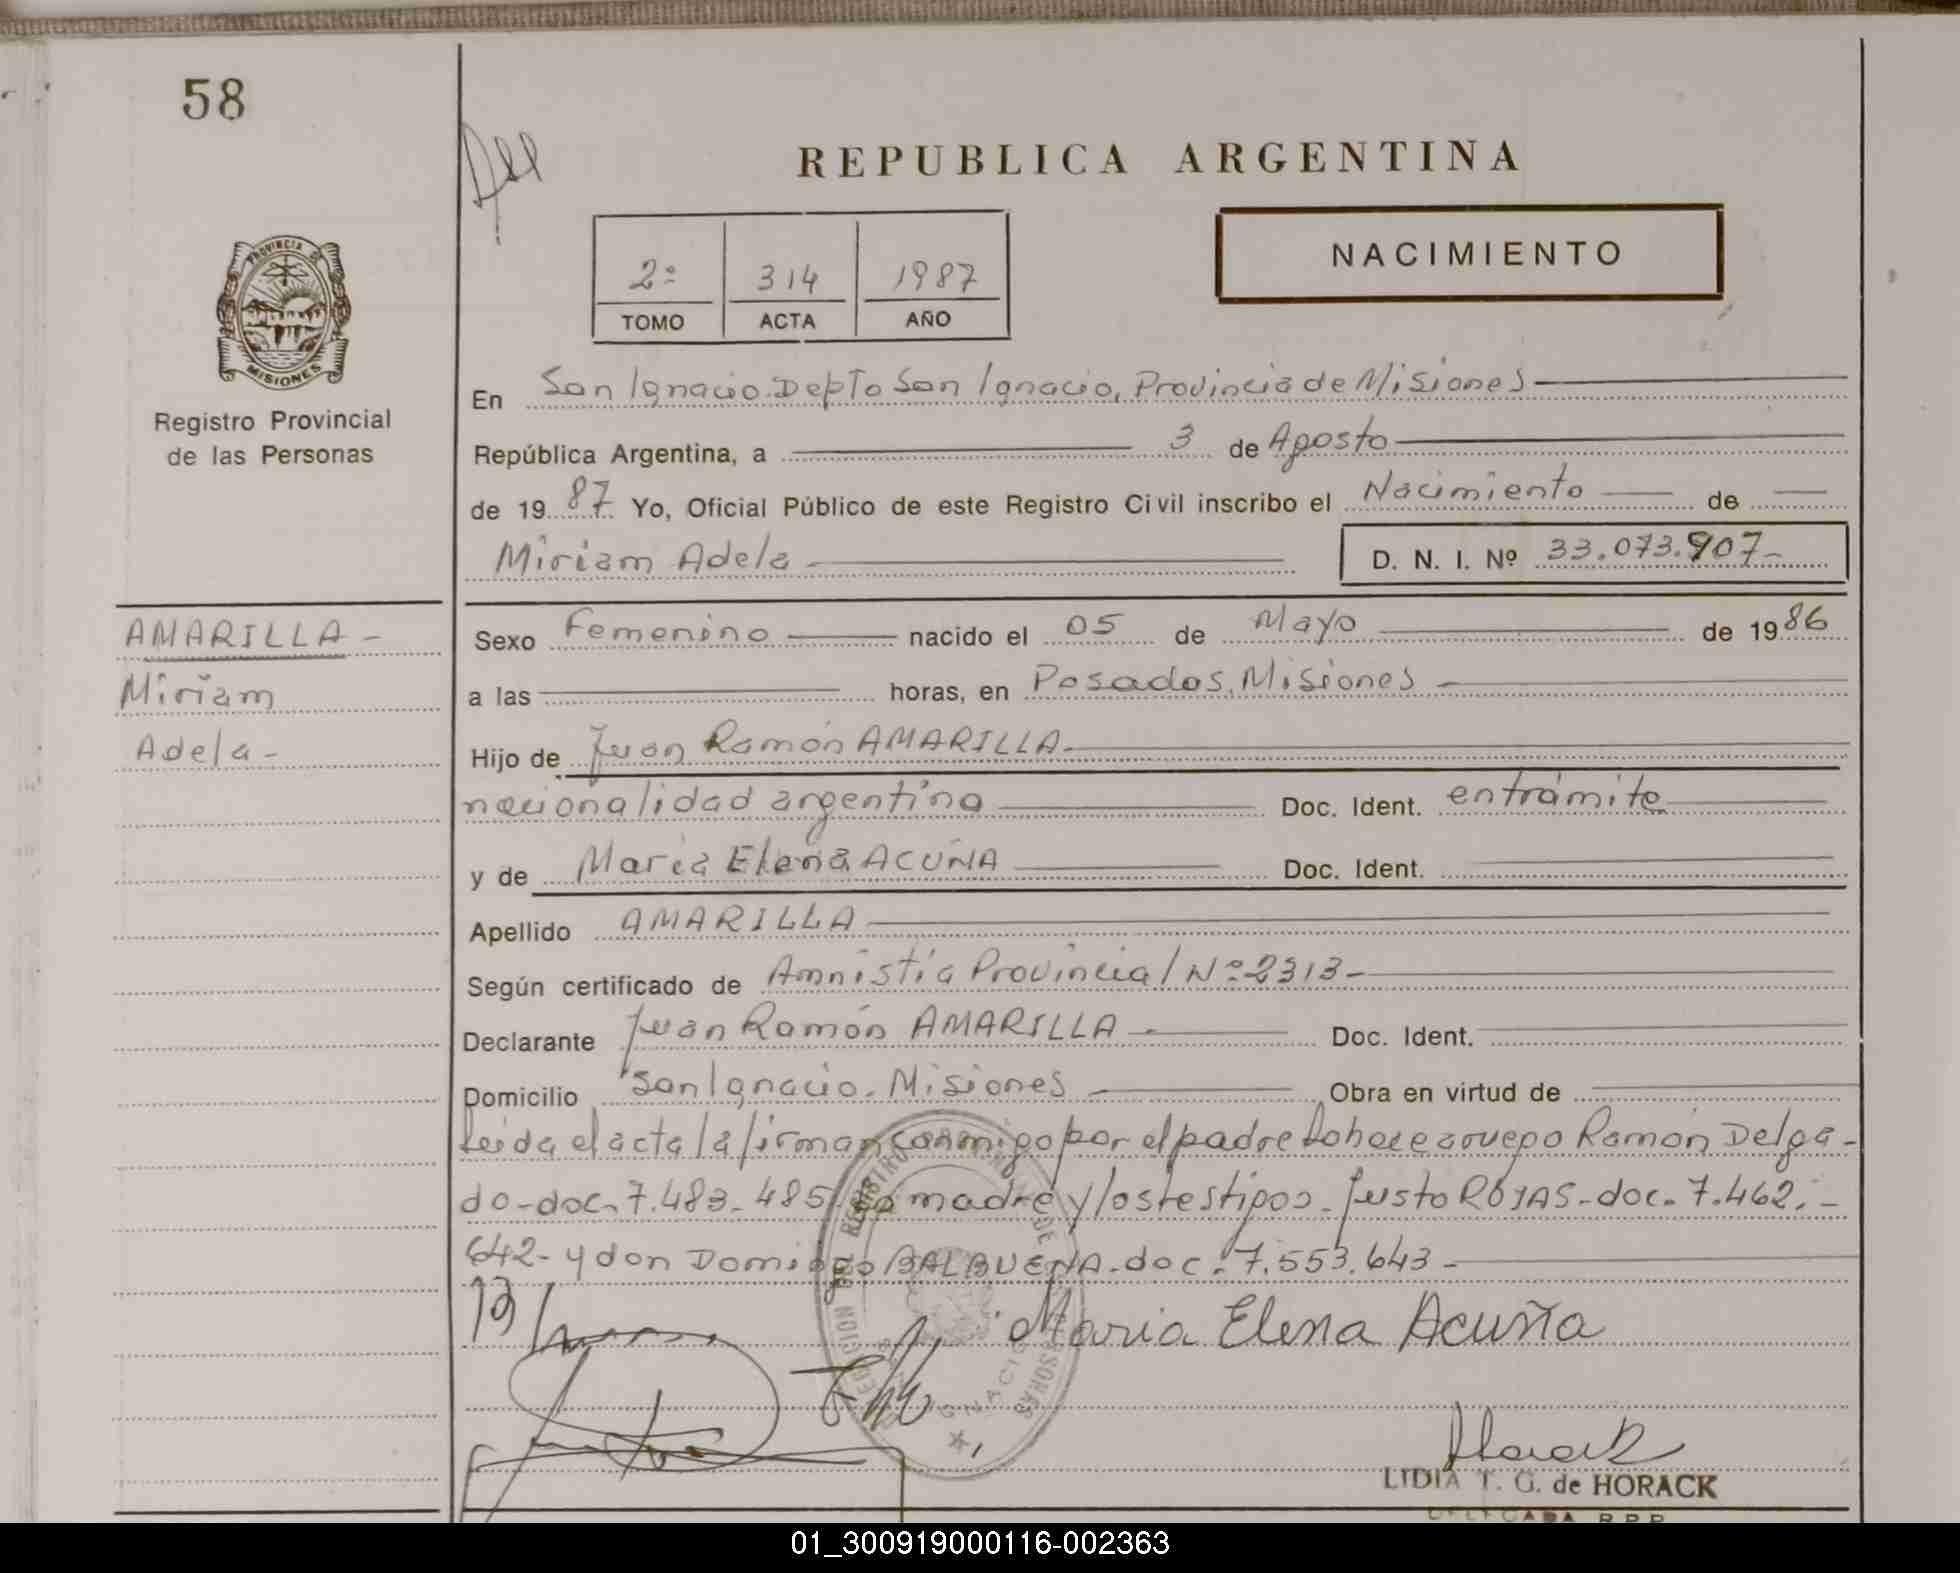 58
REPUBLICA ARGENTINA
NACIMIENTO
2º 314 1987
TOMO ACTA AÑO
PROVINCIA DE
MISIONES
Registro Provincial
de las Personas
En San Ignacio. Depto San Ignacio, Provincia de Misiones
República Argentina, a 3 de Agosto
de 19 87 Yo, Oficial Público de este Registro Civil inscribo el Nacimiento de
Miriam Adela D. N. I. Nº 33.073.907-
AMARILLA -
Miriam
Adela -
Sexo Femenino nacido el 05 de Mayo de 19 86
a las horas, en Posadas, Misiones -
Hijo de Juan Ramón AMARILLA
nacionalidad argentina Doc. Ident. en trámite
y de María Elena ACUÑA Doc. Ident.
Apellido AMARILLA
Según certificado de Amnistía Provincial Nº 2313-
Declarante Juan Ramón AMARILLA - Doc. Ident.
Domicilio San Ignacio. Misiones - Obra en virtud de
Leida el acta la firman conmigo por el padre lo hace a ruego Ramón Delga-
do-doc. 7.483.485 la madre y los testigos. Justo ROJAS-doc. 7.462.-
642- y don Domingo BALBUENA-doc. 7.553.643-
Maria Elena Acuña
Horack
LIDIA T. G. de HORACK
DELEGADA R.P.P.
01_300919000116-002363